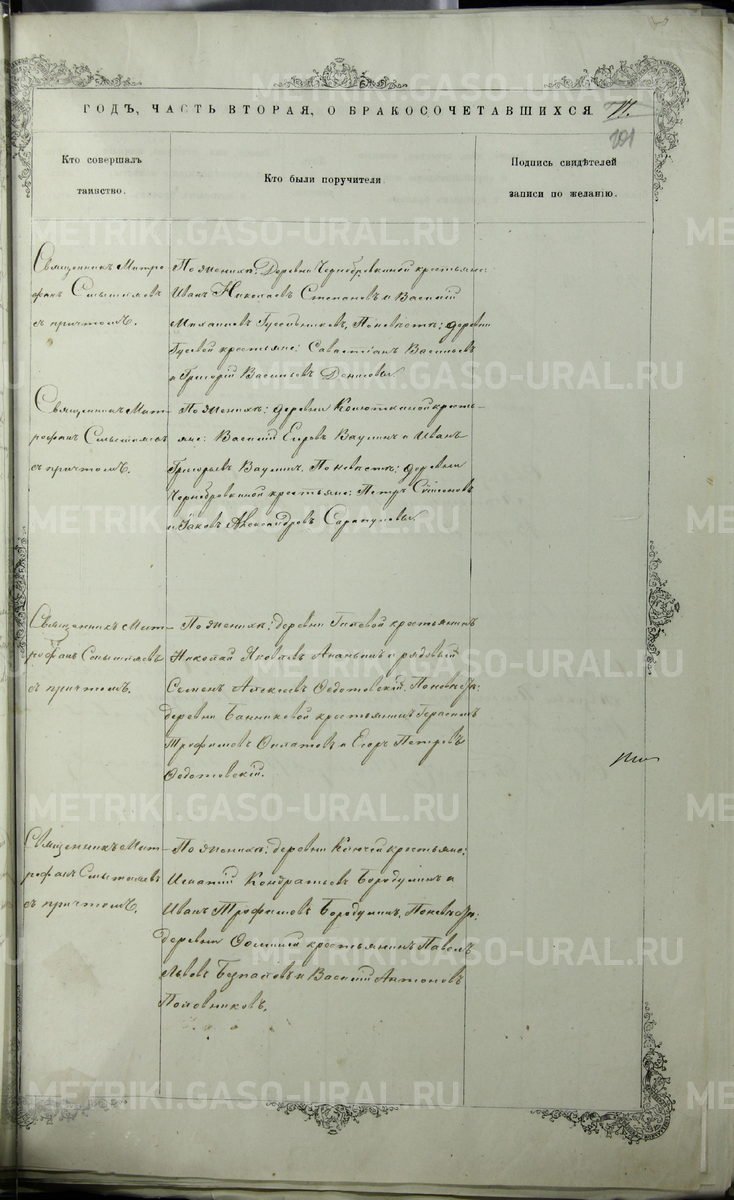 ГОДЪ, ЧАСТЬ ВТОРАЯ, О БРАКОСОЧЕТАВШИХСЯ.
201
Кто совершалъ
таинство.
Кто были поручители.
Подпись свидѣтелей
записи по желанію.
Священникъ Митро-
фанъ Смышляевъ
съ причтомъ.
По женихѣ: Деревни Чернобровкиной крестьяне:
Иванъ Николаевъ Степановъ и Василій
Михаиловъ Гусельниковъ, По невѣстѣ: деревни
Гусевой крестьяне: Савастіанъ Васильевъ
и Григорій Васильевъ Денисовы.
Священникъ Мит-
рофанъ Смышляевъ
съ причтомъ.
По женихѣ: деревни Колюткиной кресть-
яне: Василій Егоровъ Ваулинъ и Иванъ
Григорьевъ Ваулинъ. По невѣстѣ: деревни
Чернобровкиной крестьяне: Петръ Симеоновъ
и Іаковъ Александровъ Сарапуловы.
Священникъ Мит-
рофанъ Смышляевъ
съ причтомъ.
По женихѣ: деревни крестьянинъ
Николай Яковлевъ Ананьинъ и рядовый
Семенъ Алексѣевъ Ѳедотовскій. По невѣстѣ:
деревни Банниковой крестьянинъ Герасимъ
Трофимовъ и Егоръ Петровъ
Ѳедотовскій.
Священникъ Мит-
рофанъ Смышляевъ
съ причтомъ.
По женихѣ: деревни Ключей крестьяне:
Игнатій Кондратьевъ Бородулинъ и
Иванъ Трофимовъ Бородулинъ. По невѣстѣ:
деревни крестьянинъ Павелъ
Львовъ и Василій Антоновъ
Половниковъ.
METRIKI.GASO-URAL.RU